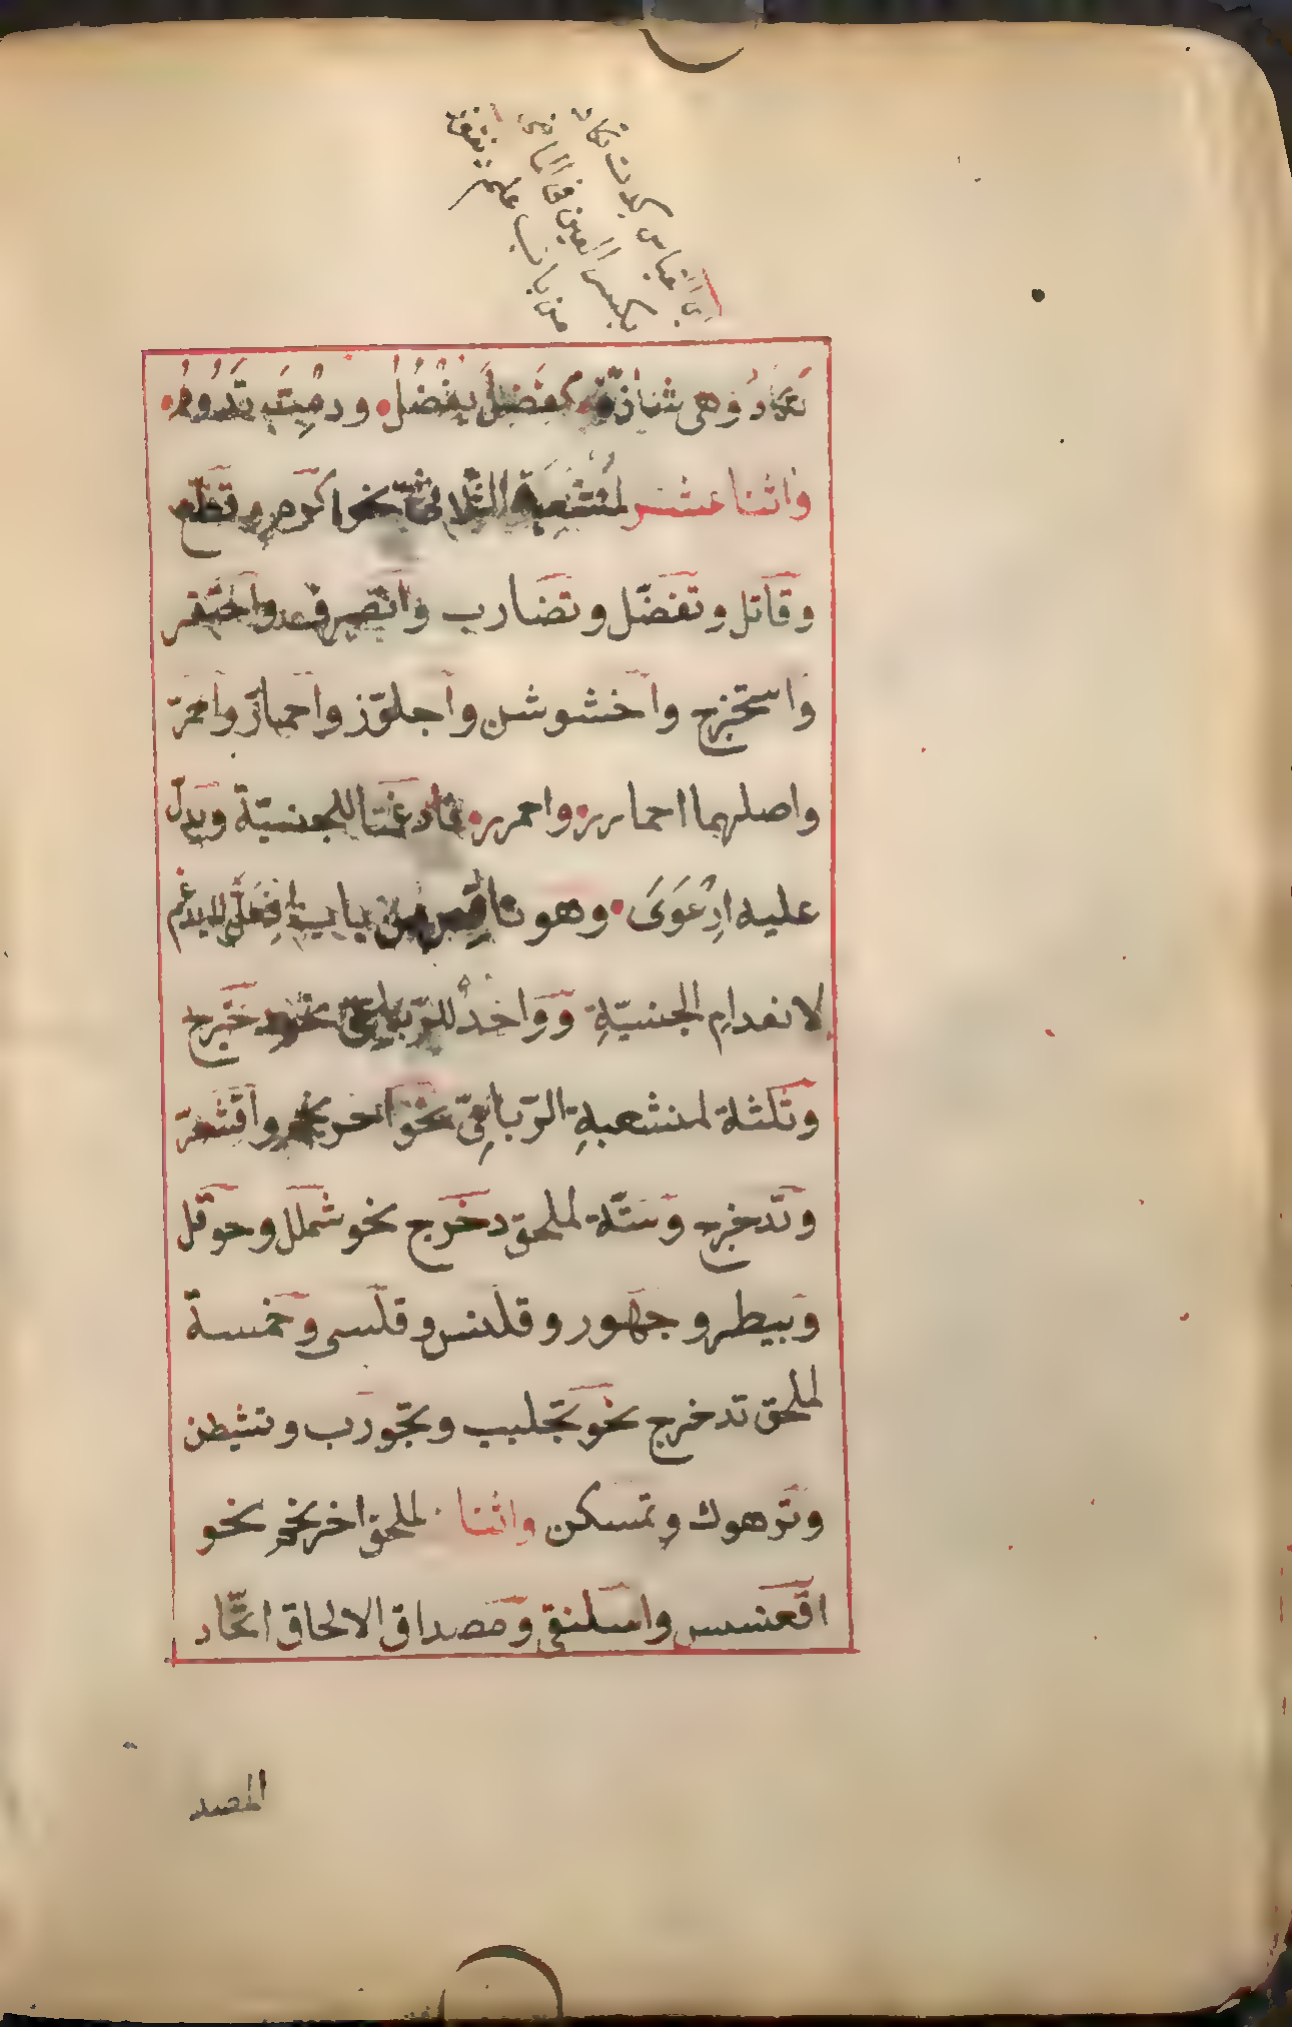 اى القياس كدت تكاد
بكسر العين فى الماضى
من باب علم
تَكَادُ وَهى شاذّة كفَضِلَ يَفْضُلُ ودِمْتَ تَدُومُ
وَاثنا عشر لمُنْشَعِبَةِ الثّلاثىّ نحو اكرم وقطّع
وقَاتل وتَفَضّل وتضَارب وانصرف واحتقر
وَاستخرج واخشوشن واجلوّذ واحمارّ واحمرّ
واصلهما احمارر واحمرر فادغمتا للجنسيّة ويدلّ
عليه اِرْعَوَى وهو ناقص من باب افعلّ ولا يدغم
لانعدامِ الجنسيّةِ وَوَاحدٌ للرّباعىّ نحو دحرج
وَثلثة لمنشعبةِ الرّباعِىّ نحو احرنجم واقشعرّ
وتدحرج وَستّة لملحق دحرج نحو شملل وحوقل
وَبيطر وجهور وقلنس وقلسى وَخمسة
لملحق تدحرج نحو تجلبب وتجورب وتشيطن
وتَرهوك وتمسكن واثنا لملحق احرنجم نحو
اقعنسس واسلنقى وَمصداق الالحاق اتّحاد
المصد